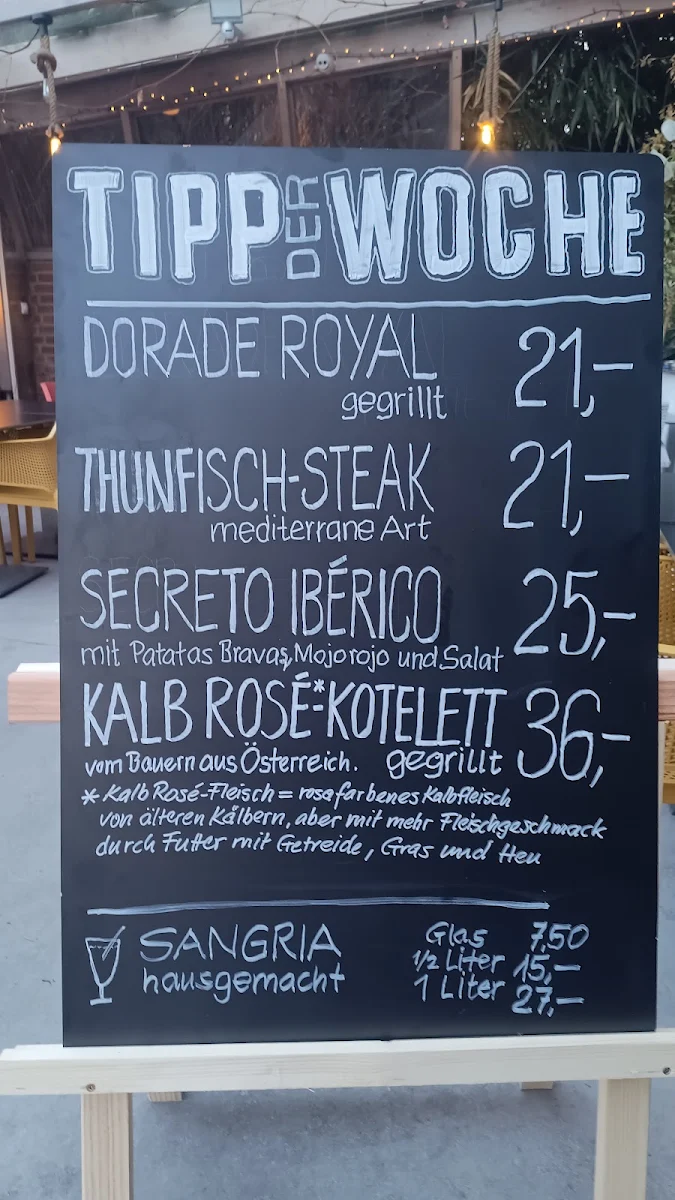 TIPP DER WOCHE
DORADE ROYAL 21,-
gegrillt
THUNFISCH-STEAK 21,-
mediterrane Art
SECRETO IBÉRICO 25,-
mit Patatas Bravas, Mojorojo und Salat
KALB ROSÉ*-KOTELETT 36,-
vom Bauern aus Österreich. gegrillt
* Kalb Rosé-Fleisch = rosafarbenes Kalbfleisch
von älteren Kälbern, aber mit mehr Fleischgeschmack
durch Futter mit Getreide, Gras und Heu
SANGRIA Glas 7,50
hausgemacht 1/2 Liter 15,-
1 Liter 27,-